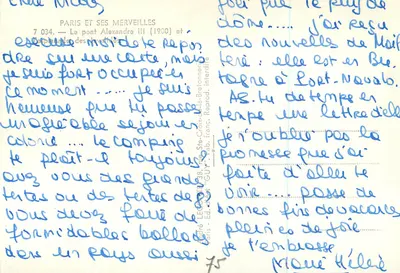 Chère Nicole,
PARIS ET SES MERVEILLES
7 034. — Le pont Alexandre III (1900) et
excuse moi de te répon
dre sur une carte, mais
je suis fort occupée en
ce moment ..... je suis
heureuse que tu passes
un agréable séjour en
colonie ... le camping
te plaît-il toujours
avez vous des grandes
tentes ou des tentes de
vous devez faire de
formidables ballades
dans un pays aussi
joli que le puy de
dôme..... j'ai reçu
des nouvelles de
elle est en Bre
tagne à Port-Navalo.
AS. tu de temps en
temps une lettre d'elle
je n'oublie pas la
promesse que j'ai
faite d'aller te
voir .... passe de
bonnes fins de vacances
pleines de joie
je t'embrasse
Marie Hélène
75